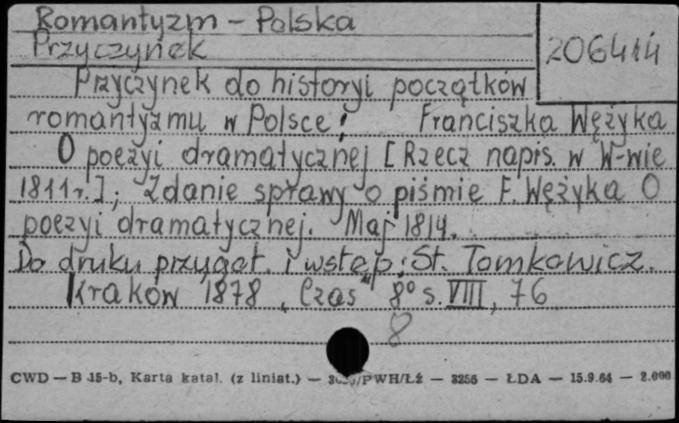 Romantyzm - Polska
Przyczynek
206414
Przyczynek do historyi początków
romantyzmu w Polsce: Franciszka Wężyka
O poezyi dramatycznej [Rzecz napis. w W-wie
1811r.]; Zdanie sprawy o piśmie F. Wężyka O
poezyi dramatycznej. Maj 1814.
Do druku przygot. i wstęp: St. Tomkowicz.
Kraków 1878 „Czas" 8° s. VIII, 76
8
CWD — B 15-b, Karta katal. (z liniat.) — /PWH/Łź — 3256 — ŁDA — 15.9.64 — 2.000